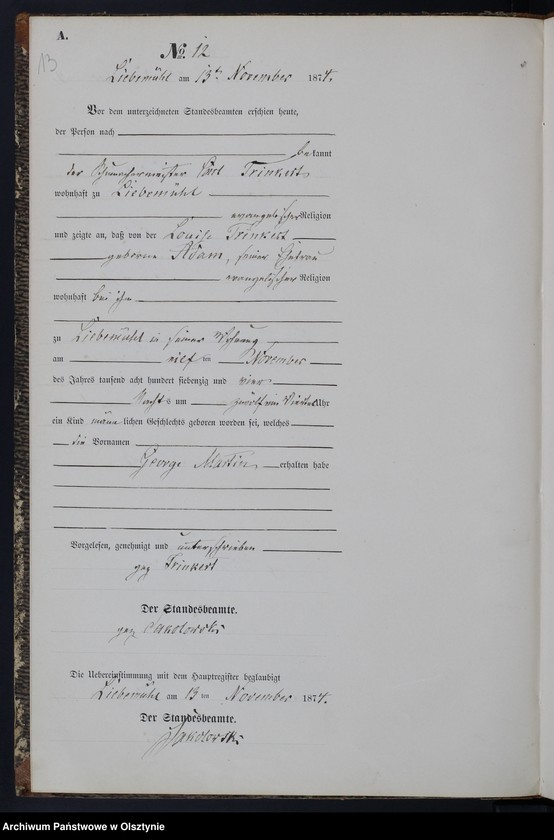 A.
13
No. 12
Liebemühl am 13ten November 1874.
Vor dem unterzeichneten Standesbeamten erschien heute,
der Person nach
bekannt
der Schumachermeister Carl Trinkert
wohnhaft zu Liebemühl
evangelischer Religion
und zeigte an, daß von der Louise Trinkert
geborene Adam, seiner Ehefrau
evangelischer Religion
wohnhaft bei ihm
zu Liebemühl in seiner Wohnung
am eilf ten November
des Jahres tausend acht hundert siebenzig und vier
Nachts um zwölf ein Viertel Uhr
ein Kind männlichen Geschlechts geboren worden sei, welches
die Vornamen
George Martin erhalten habe
Vorgelesen, genehmigt und unterschrieben
gez Trinkert
Der Standesbeamte.
gez Sakolowski
Die Uebereinstimmung mit dem Hauptregister beglaubigt
Liebemühl am 13 ten November 1874.
Der Standesbeamte.
Sakolowski
Archiwum Państwowe w Olsztynie